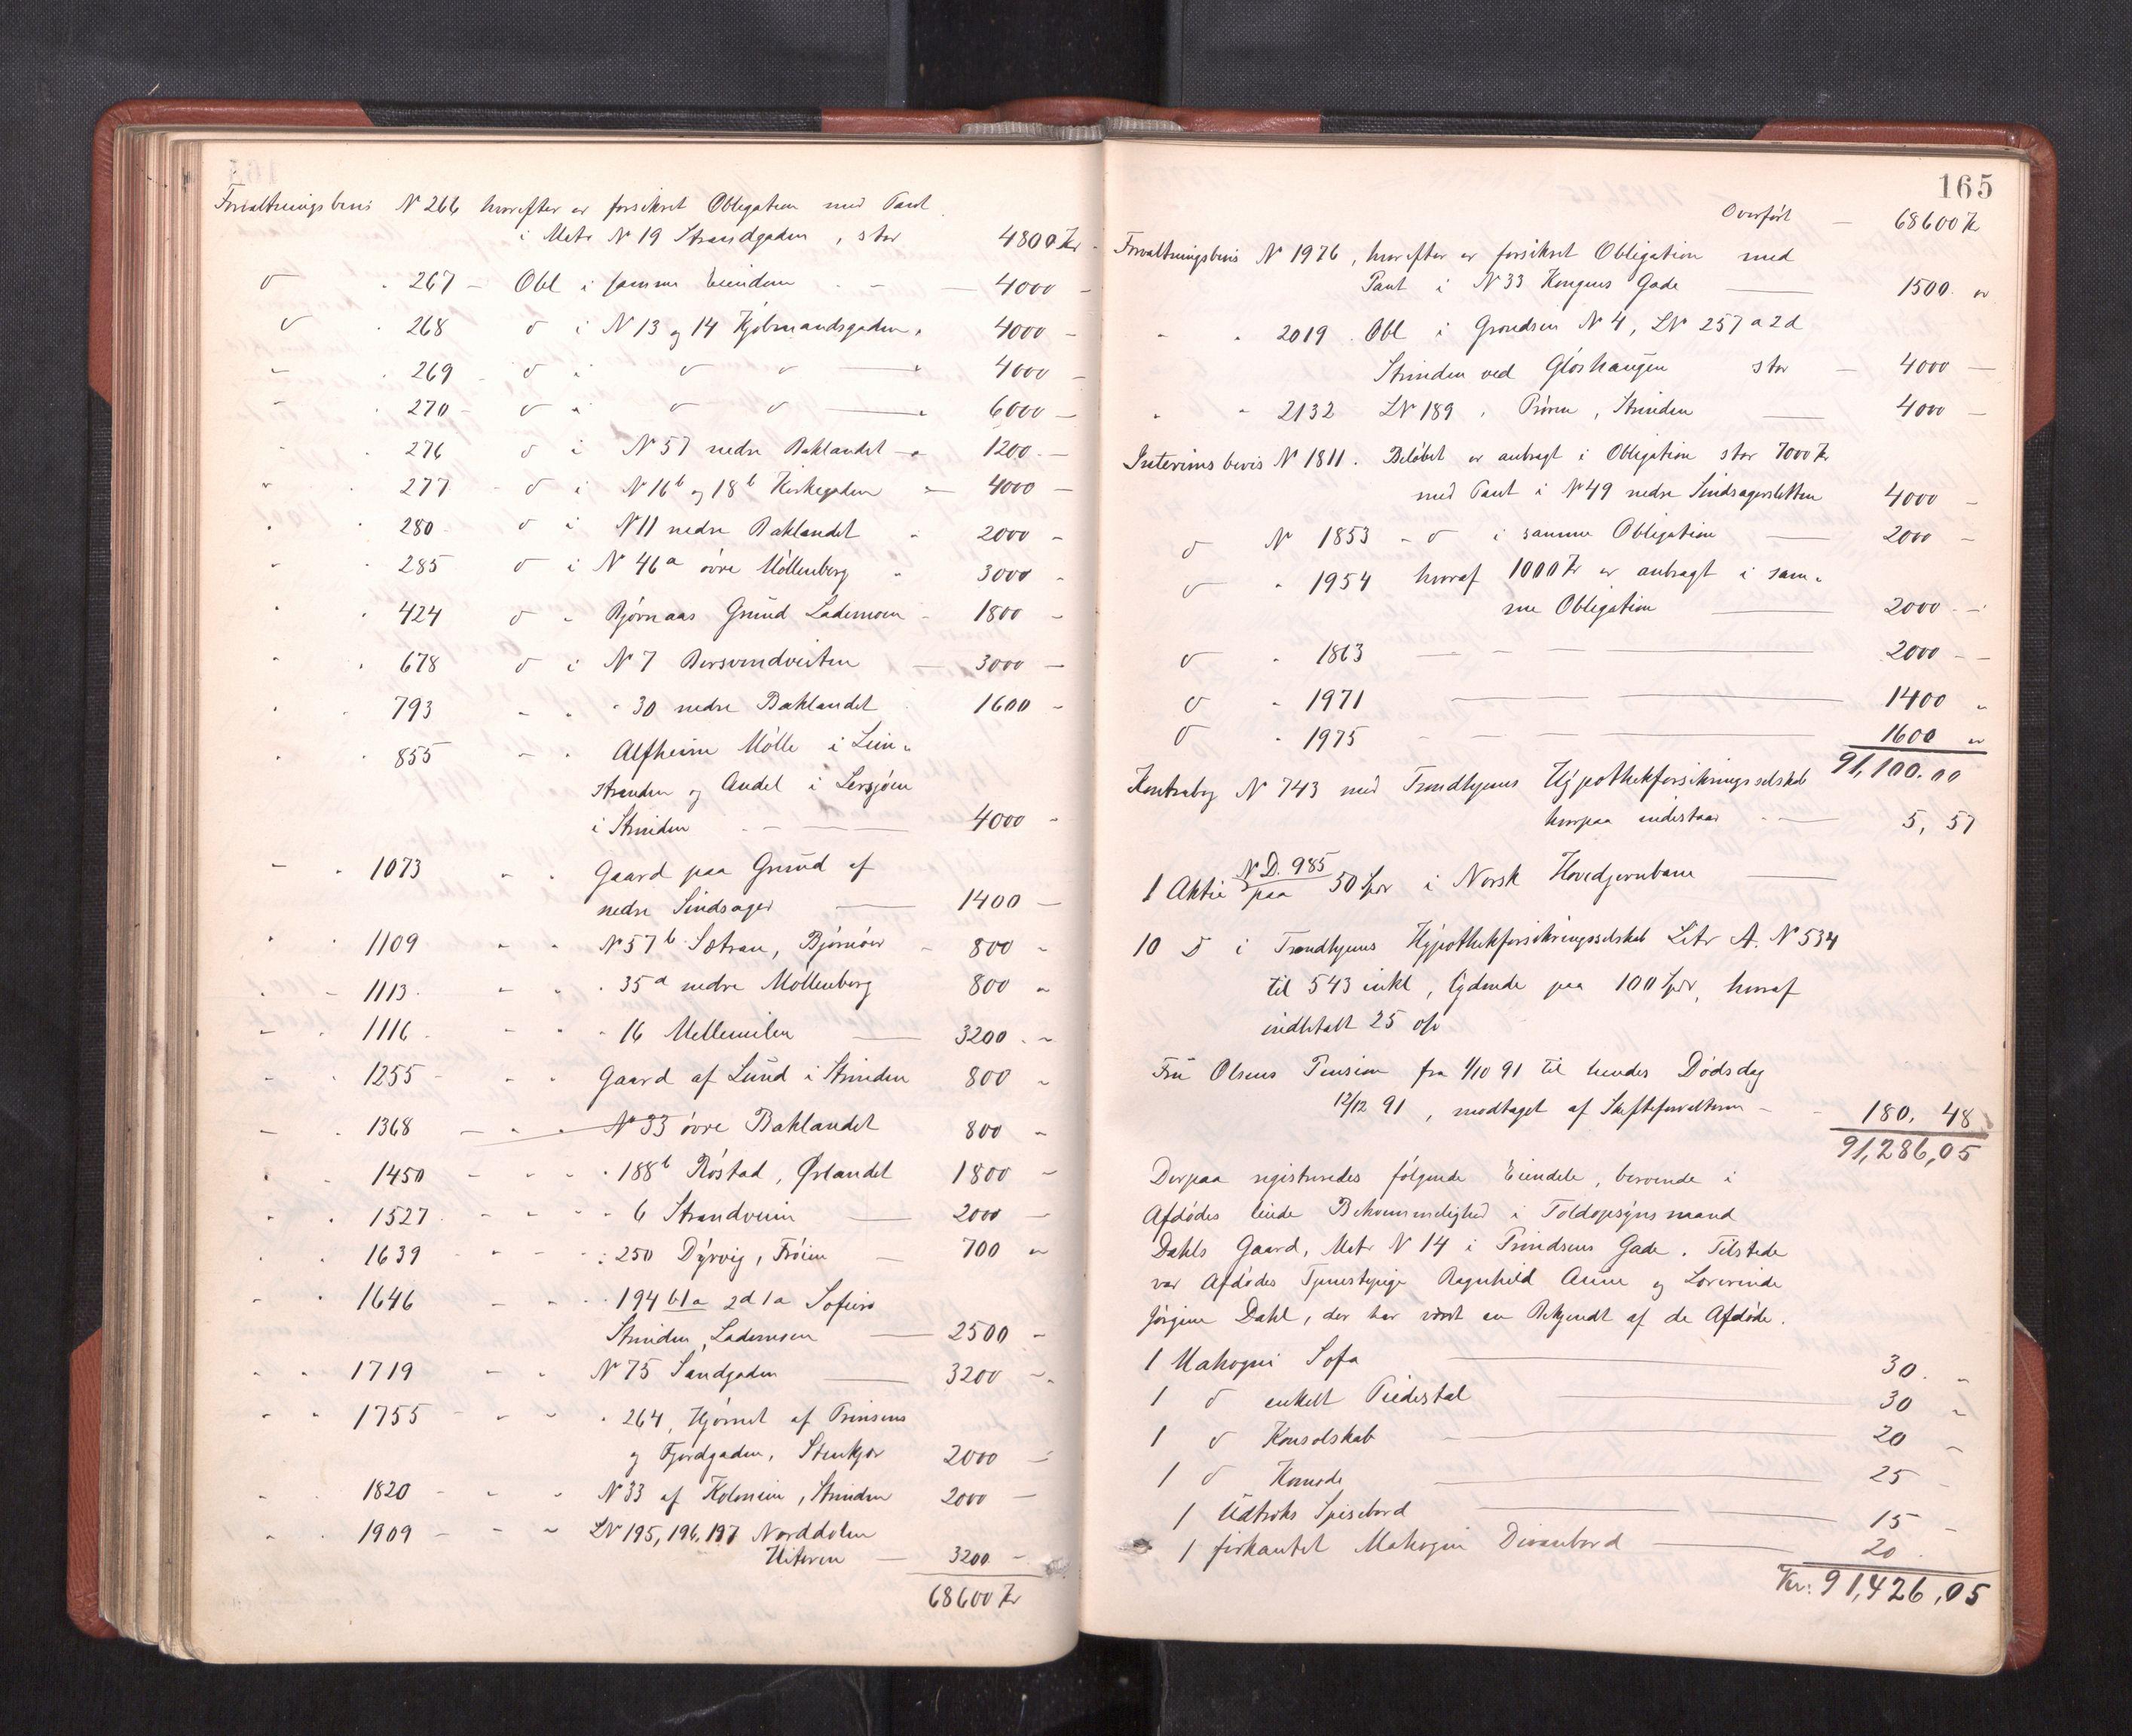 Forvaltningsbevis N 266 hvorefter er forsikret Obligation med Pant
i Matr N 19 Strandgaden, stor 4800 Kr
d . 267 - Obl i samme Eiendom - - 4000 -
d . 268 d i N 13 og 14 Kjøbmandsgaden " 4000 -
- . 269 - d " d d " 4000 -
- . 270 - d " d d " 6000 -
- 276 d i N 57 nedre Baklandet - " 1200 -
" . 277 - d i N 16b og 18b Kirkegaden " 4000 -
. . 280 - d i N 11 nedre Baklandet " 2000 -
- . 285 d i N 46a øvre Møllenberg " 3000 -
. . 424 d " Bjørnaas Grund Lademoen - 1800 -
- . 678 d i N 7 Bersvendveiten - 3000 -
. . 793 - " " 30 nedre Baklandet 1600 -
. . 855 - " Alfheim Mølle i Lein-
stranden og Andel i Lersjøen
i Strinden - 4000 -
- . 1073 " " Gaard paa Grund af
nedre Sindsager - 1400 -
. . 1109 " " N 57b Sætran, Bjørnør - 800 -
. - 1113 - " . 35a nedre Møllenberg 800 "
- . 1116 - - " - 16 Mellemilen - 3200 -
- . 1255 - " " Gaard af Lund i Strinden 800 "
- . 1368 - " " N 33 øvre Baklandet 800 "
. . 1450 - - " . 188b Røstad, Ørlandet 1800 -
. . 1527 - " - " 6 Strandveien - 2000 -
. . 1639 - " - : 250 Dyrvig, Frøien - 700 "
- . 1646 - " . 194 b1a 2d1a Sofiero
Strinden, Lademoen - 2500 -
- . 1719 - " N 75 Sandgaden - 3200 -
- " 1755 - - " . 264, Hjørnet af Prinsens
og Fjordgaden, Stenkjær 2000 -
. . 1820 - " " N 33 af Kolonien, Strinden 2000 -
- . 1909 - - " LN 195, 196, 197 Norddalen
Hiteren - 3200 -
68600 Kr
165
Overført - 68600 Kr
Forvaltningsbevis N 1976, hvorefter er forsikret Obligation med
Pant i N 33 Kongens Gade - 1500 "
- . 2019 . Obl i Grændsen N 4, LN 257 a 2d
Strinden ved Gløshaugen stor - 4000 -
" " 2132 LN 189, Prøven, Strinden - 4000 -
Interimsbevis N 1811. Beløbet er anbragt i Obligation stor 7000 Kr
med Pant i N 49 nedre Sindsagersletten 4000 -
d N 1853 - d i samme Obligation - 2000 -
d " 1954 hvoraf 1000 Kr er anbragt i sam-
me Obligation - 2000 -
d " 1863 - - - 2000 -
d " 1971 - - - 1400 "
d " 1975 - - - 1600 "
91,100.00
Kontrabog N 743 med Trondhjems Hypothekforsikringsselskab
hvorpaa indestaar - 5, 57
N D. 985
1 Aktie paa 50 Spdr i Norsk Hovedjernbane -
10 D i Trondhjems Hypothekforsikringsselskab Litr A. N 534
til 543 inkl, lydende paa 100 Spdr, hvoraf
indbetalt 25 o/o
Fru Olsens Pension fra 1/10 91 til hendes Dødsdag
12/12 91, modtaget af Skifteforvalteren - - 180, 48
91,286,05
Derpaa registreredes følgende Eiendele, beroende i
Afdødes leiede Bekvemmelighed i Toldopsynsmand
Dahls Gaard, Matr N 14 i Prindsens Gade. Tilstede
var Afdødes Tjenestepige Ragnhild Aune og Lovervinde
Jørgine Dahl, der har været en Bekjendt af de Afdøde.
1 Mahogni Sofa - 30. "
1 d enkelt Piedestal - 30 "
1 d Konsolskab - 20 -
1 d Komode - 25 -
1 Udtræks Spisebord - 15 -
1 firkantet Mahogni Divanbord - 20
Kr: 91,426,05